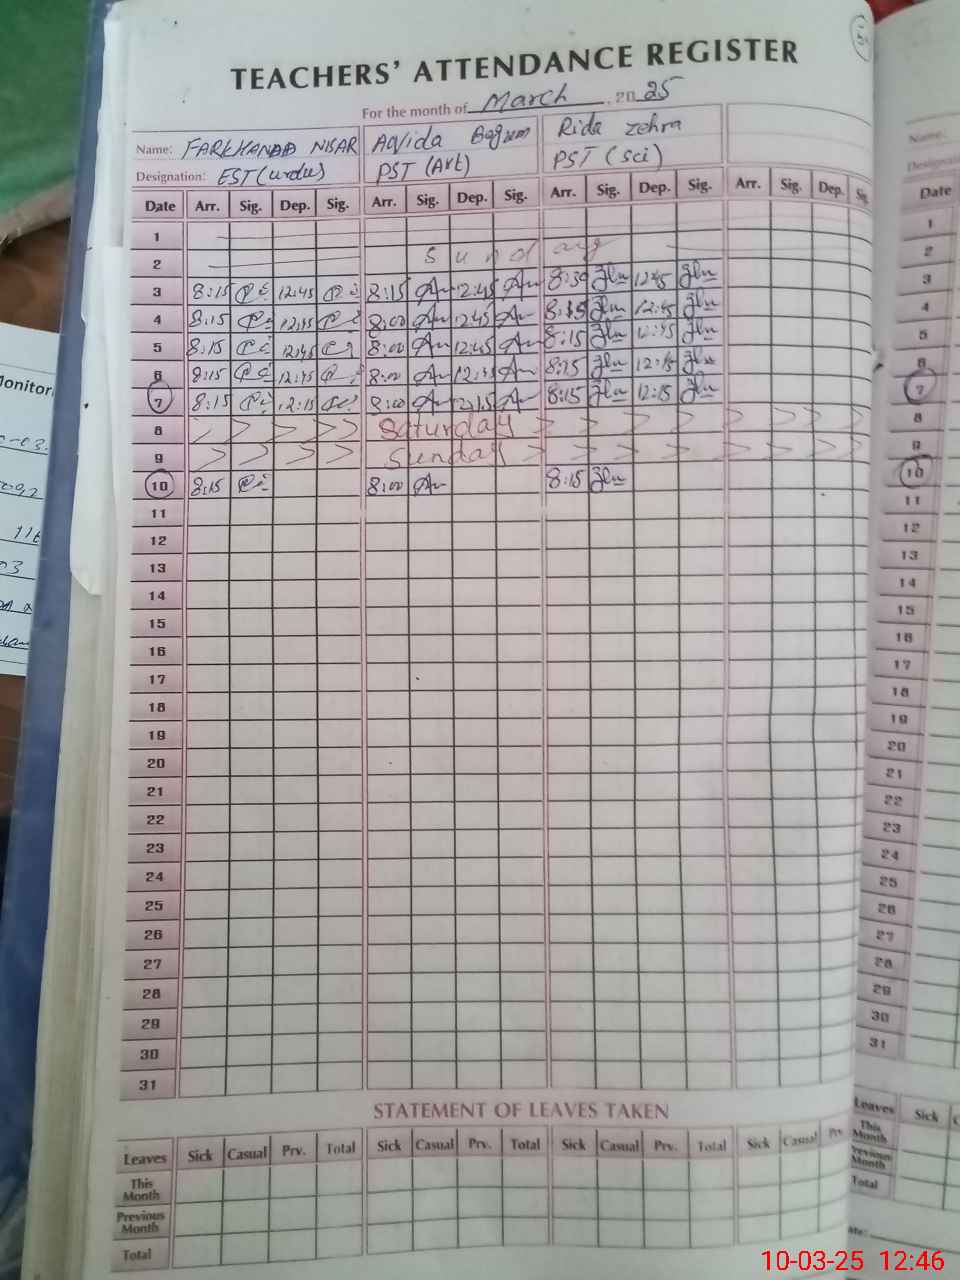 TEACHERS' ATTENDANCE REGISTER
For the month of March, 2025
Name: FARKHANDA NISAR Aqvida Begum Rida Zehra
Designation: EST (urdu) PST (Art) PST (sci)
Date Arr. Sig. Dep. Sig. Arr. Sig. Dep. Sig. Arr. Sig. Dep. Sig. Arr. Sig. Dep. Sig.
1
2 Sunday
3 8:15 12:45 8:15 12:45 8:30 12:45
4 8:15 12:45 8:00 12:45 8:15 12:45
5 8:15 12:45 8:00 12:45 8:15 12:45
6 8:15 12:45 8:00 12:45 8:15 12:15
7 8:15 12:15 8:00 12:15 8:15 12:15
8 Saturday
9 Sunday
10 8:15 8:00 8:15
11
12
13
14
15
16
17
18
19
20
21
22
23
24
25
26
27
28
29
30
31
STATEMENT OF LEAVES TAKEN
Leaves Sick Casual Prv. Total Sick Casual Prv. Total Sick Casual Prv. Total Sick Casual Prv.
This Month
Previous Month
Total
Name:
Date
1
2
3
4
5
6
7
8
9
10
11
12
13
14
15
16
17
18
19
20
21
22
23
24
25
26
27
28
29
30
31
Leaves Sick
This Month
Previous Month
Total
10-03-25 12:46